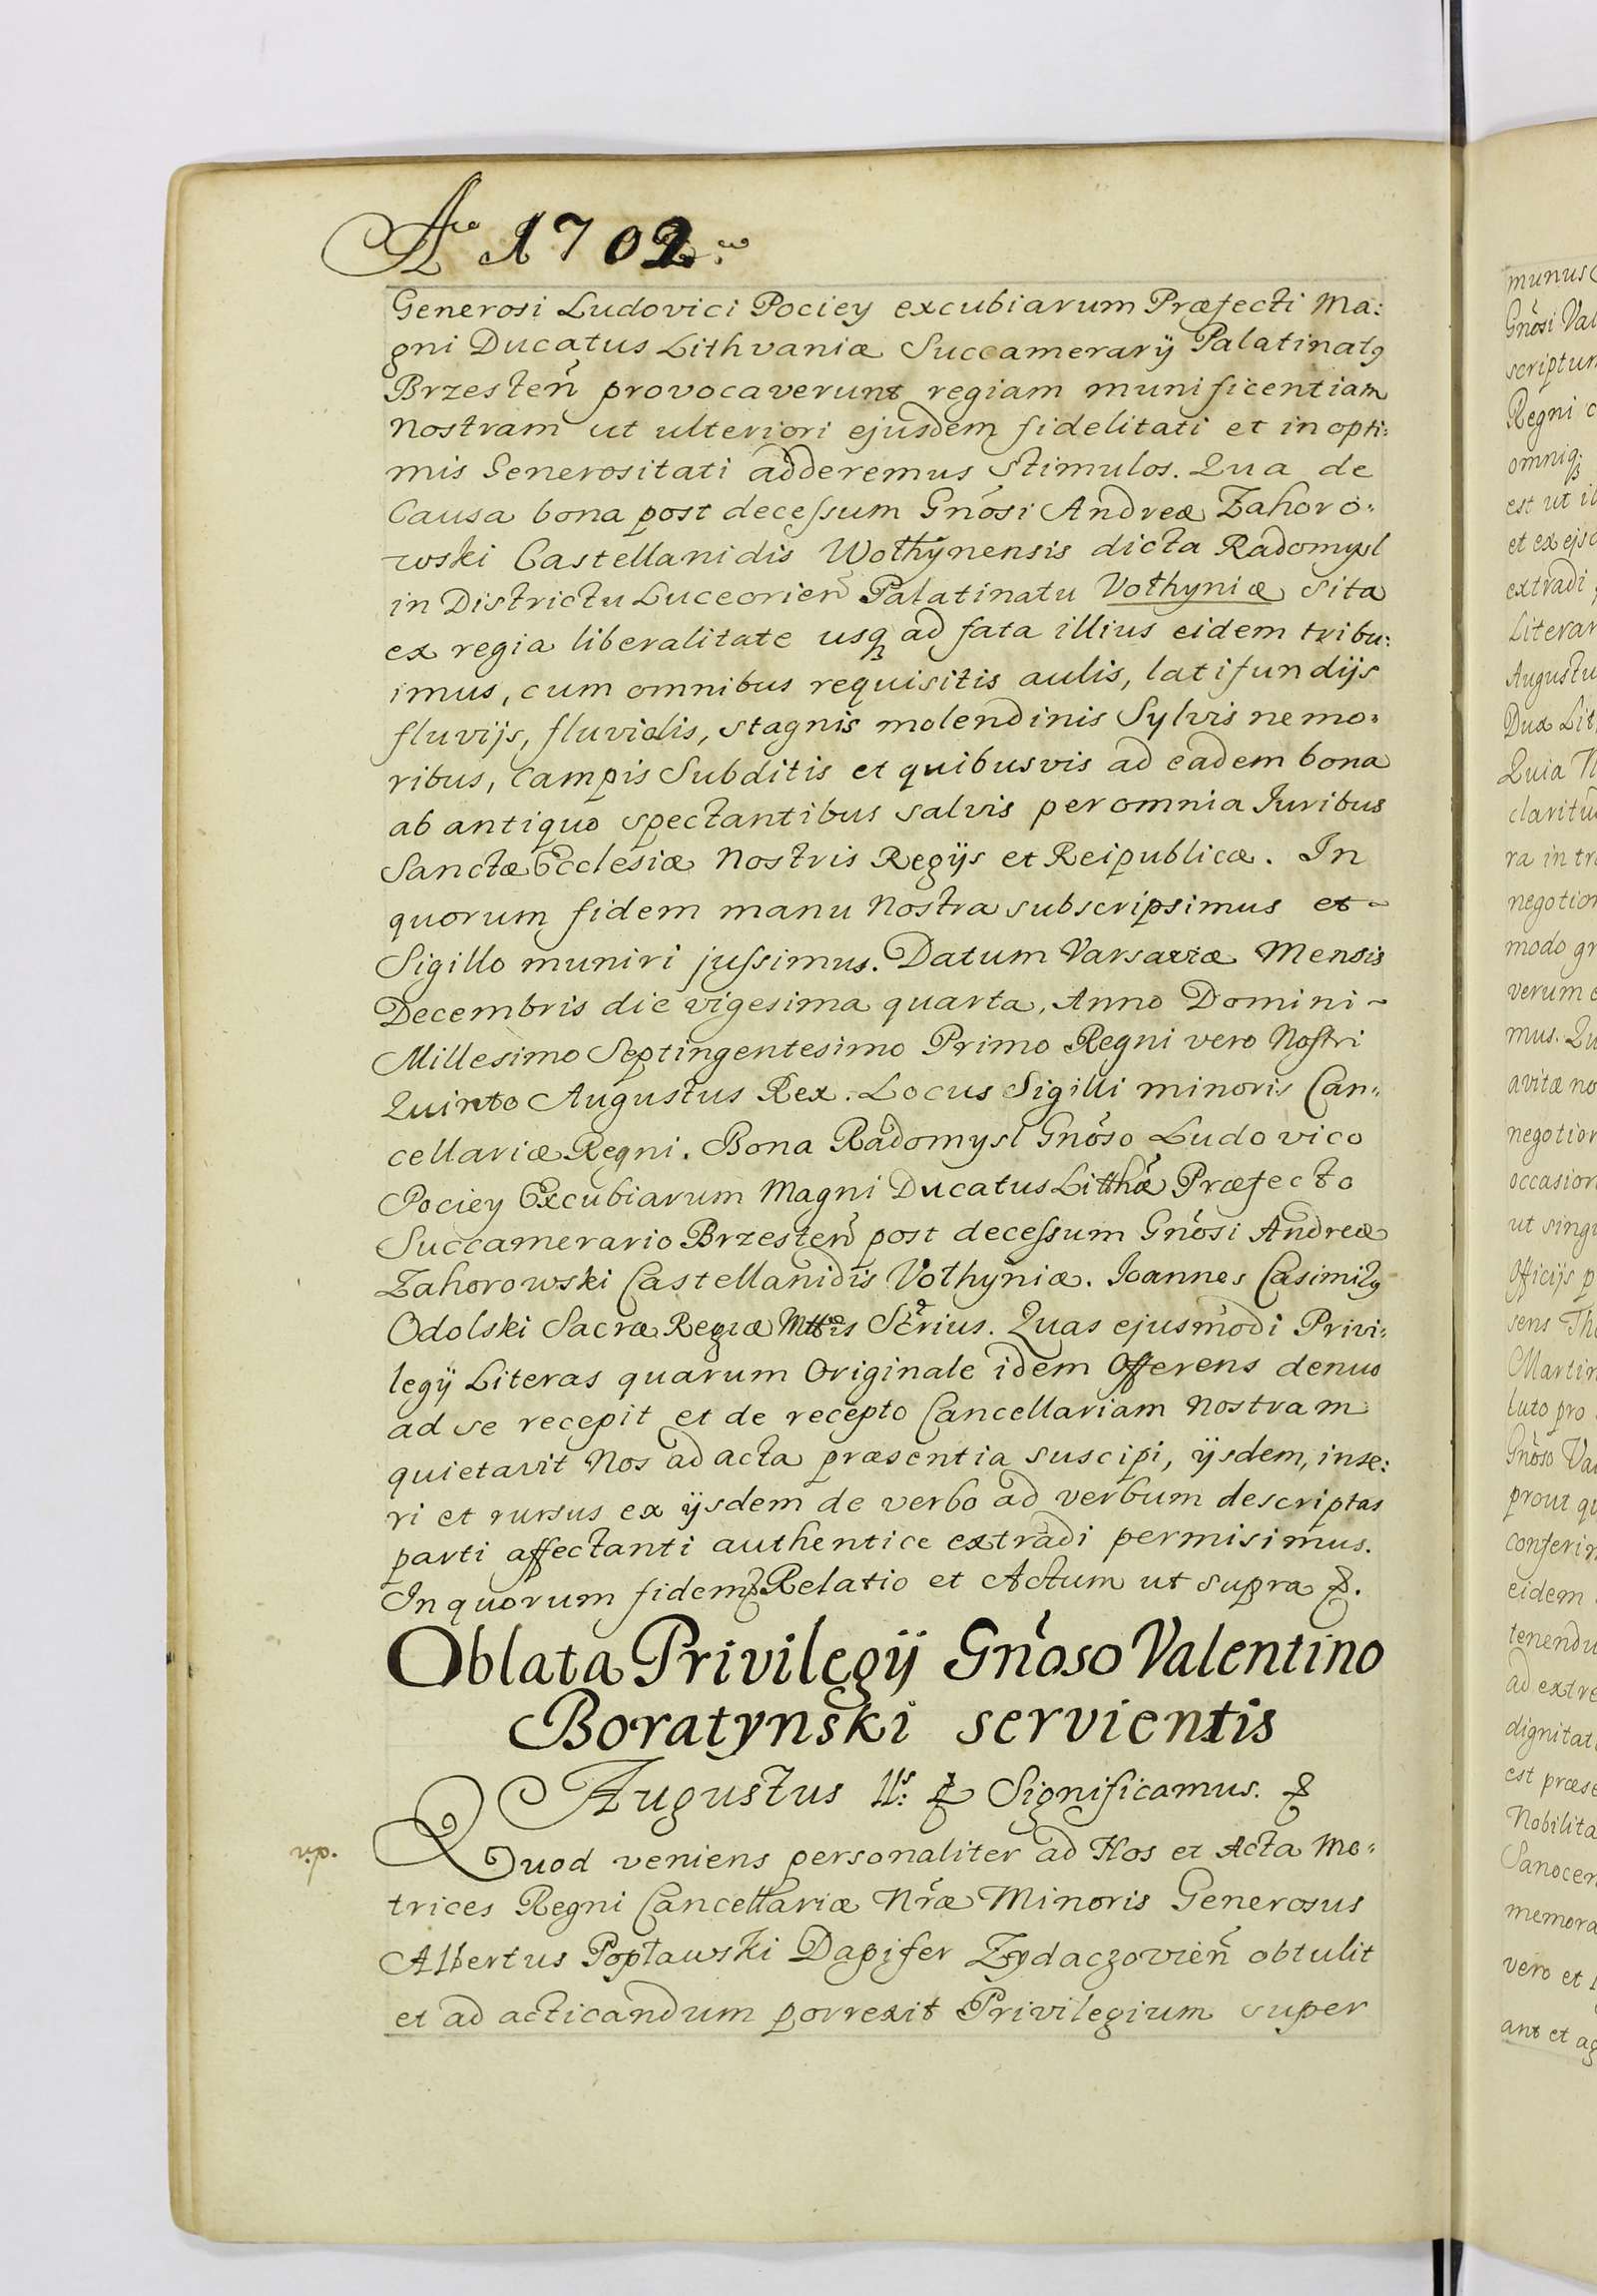 Ao 1702.
Generosi Ludovici Pociey excubiarum Præfecti Ma:
gni Ducatus Lithvaniæ Succamerarij Palatinatꝯ
Brzesteñ provocaverunt regiam munificentiam
Nostram ut ulteriori ejusdem fidelitati et in opti:
mis Generositati adderemus stimulos. Qua de
Causa bona post decessum Gnõsi Andreæ Zahoro:
wski Castellanidis Wołhynensis dicta Radomysl
in Districtu Luceorieñ Palatinatu Vołhyniæ sita
ex regia liberalitate usqꝫ ad fata illius eidem tribu:
imus, cum omnibus requisitis aulis, latifundijs
fluvijs, fluviolis, stagnis molendinis Sylvis nemo:
ribus, Campis Subditis et quibusvis ad eadem bona
ab antiquo spectantibus salvis per omnia Iuribus
Sanctæ Ecclesiæ Nostris Regijs et Reipublicæ. In
quorum fidem manu Nostra subscripsimus et ~
Sigillo muniri jussimus. Datum Varsaviæ Mensis
Decembris die vigesima quarta, Anno Domini ~
Millesimo Septingentesimo Primo Regni vero Nostri
Quinto Augustus Rex. Locus Sigilli minoris Can:
cellariæ Regni. Bona Radomysl Gnõso Ludovico
Pociey Excubiarum Magni Ducatus Litthæ Præfecto
Succamerario Brzesteñ post decessum Gnõsi Andreæ
Zahorowski Castellanidis Vołhyniæ. Ioannes Casimirꝯ
Odolski Sacræ Regiæ Mttis Scrius. Quas ejusmodi Privi:
legij Literas quarum Originale idem Offerens denuo
ad se recepit et de recepto Cancellariam Nostram
quietavit Nos ad acta præsentia suscipi, ijsdem, inse:
ri et rursus ex ijsdem de verbo ad verbum descriptas
parti affectanti authentice extradi permisimus.
In quorum fidem Relatio et Actum ut supra &.
Oblata Privilegij Gnõso Valentino
Boratynski servientis
Augustus IIs: & Significamus. &
Quod veniens personaliter ad Nos et Acta Me:
trices Regni Cancellariæ Nræ Minoris Generosus
Albertus Popławski Dapifer Zydaczovieñ obtulit
et ad acticandum porrexit Privilegium super
munus
Gnõsi Val
scriptum
Regni c
omniqꝫ
est ut il
et ex ejsd
extradi
Literar
Augustu
Dux Lit
Quia N
claritu
ra in tr
negotior
modo gr
verum e
mus. Qu
avitæ no
negotior
occasion
ut singu
Officijs p
sens Th
Martin
luto pro
Gnõso Va
prout qu
conferim
eidem
tenendu
ad extre
dignitat
est præse
Nobilita
Sanocen
memora
vero et
ant et ag